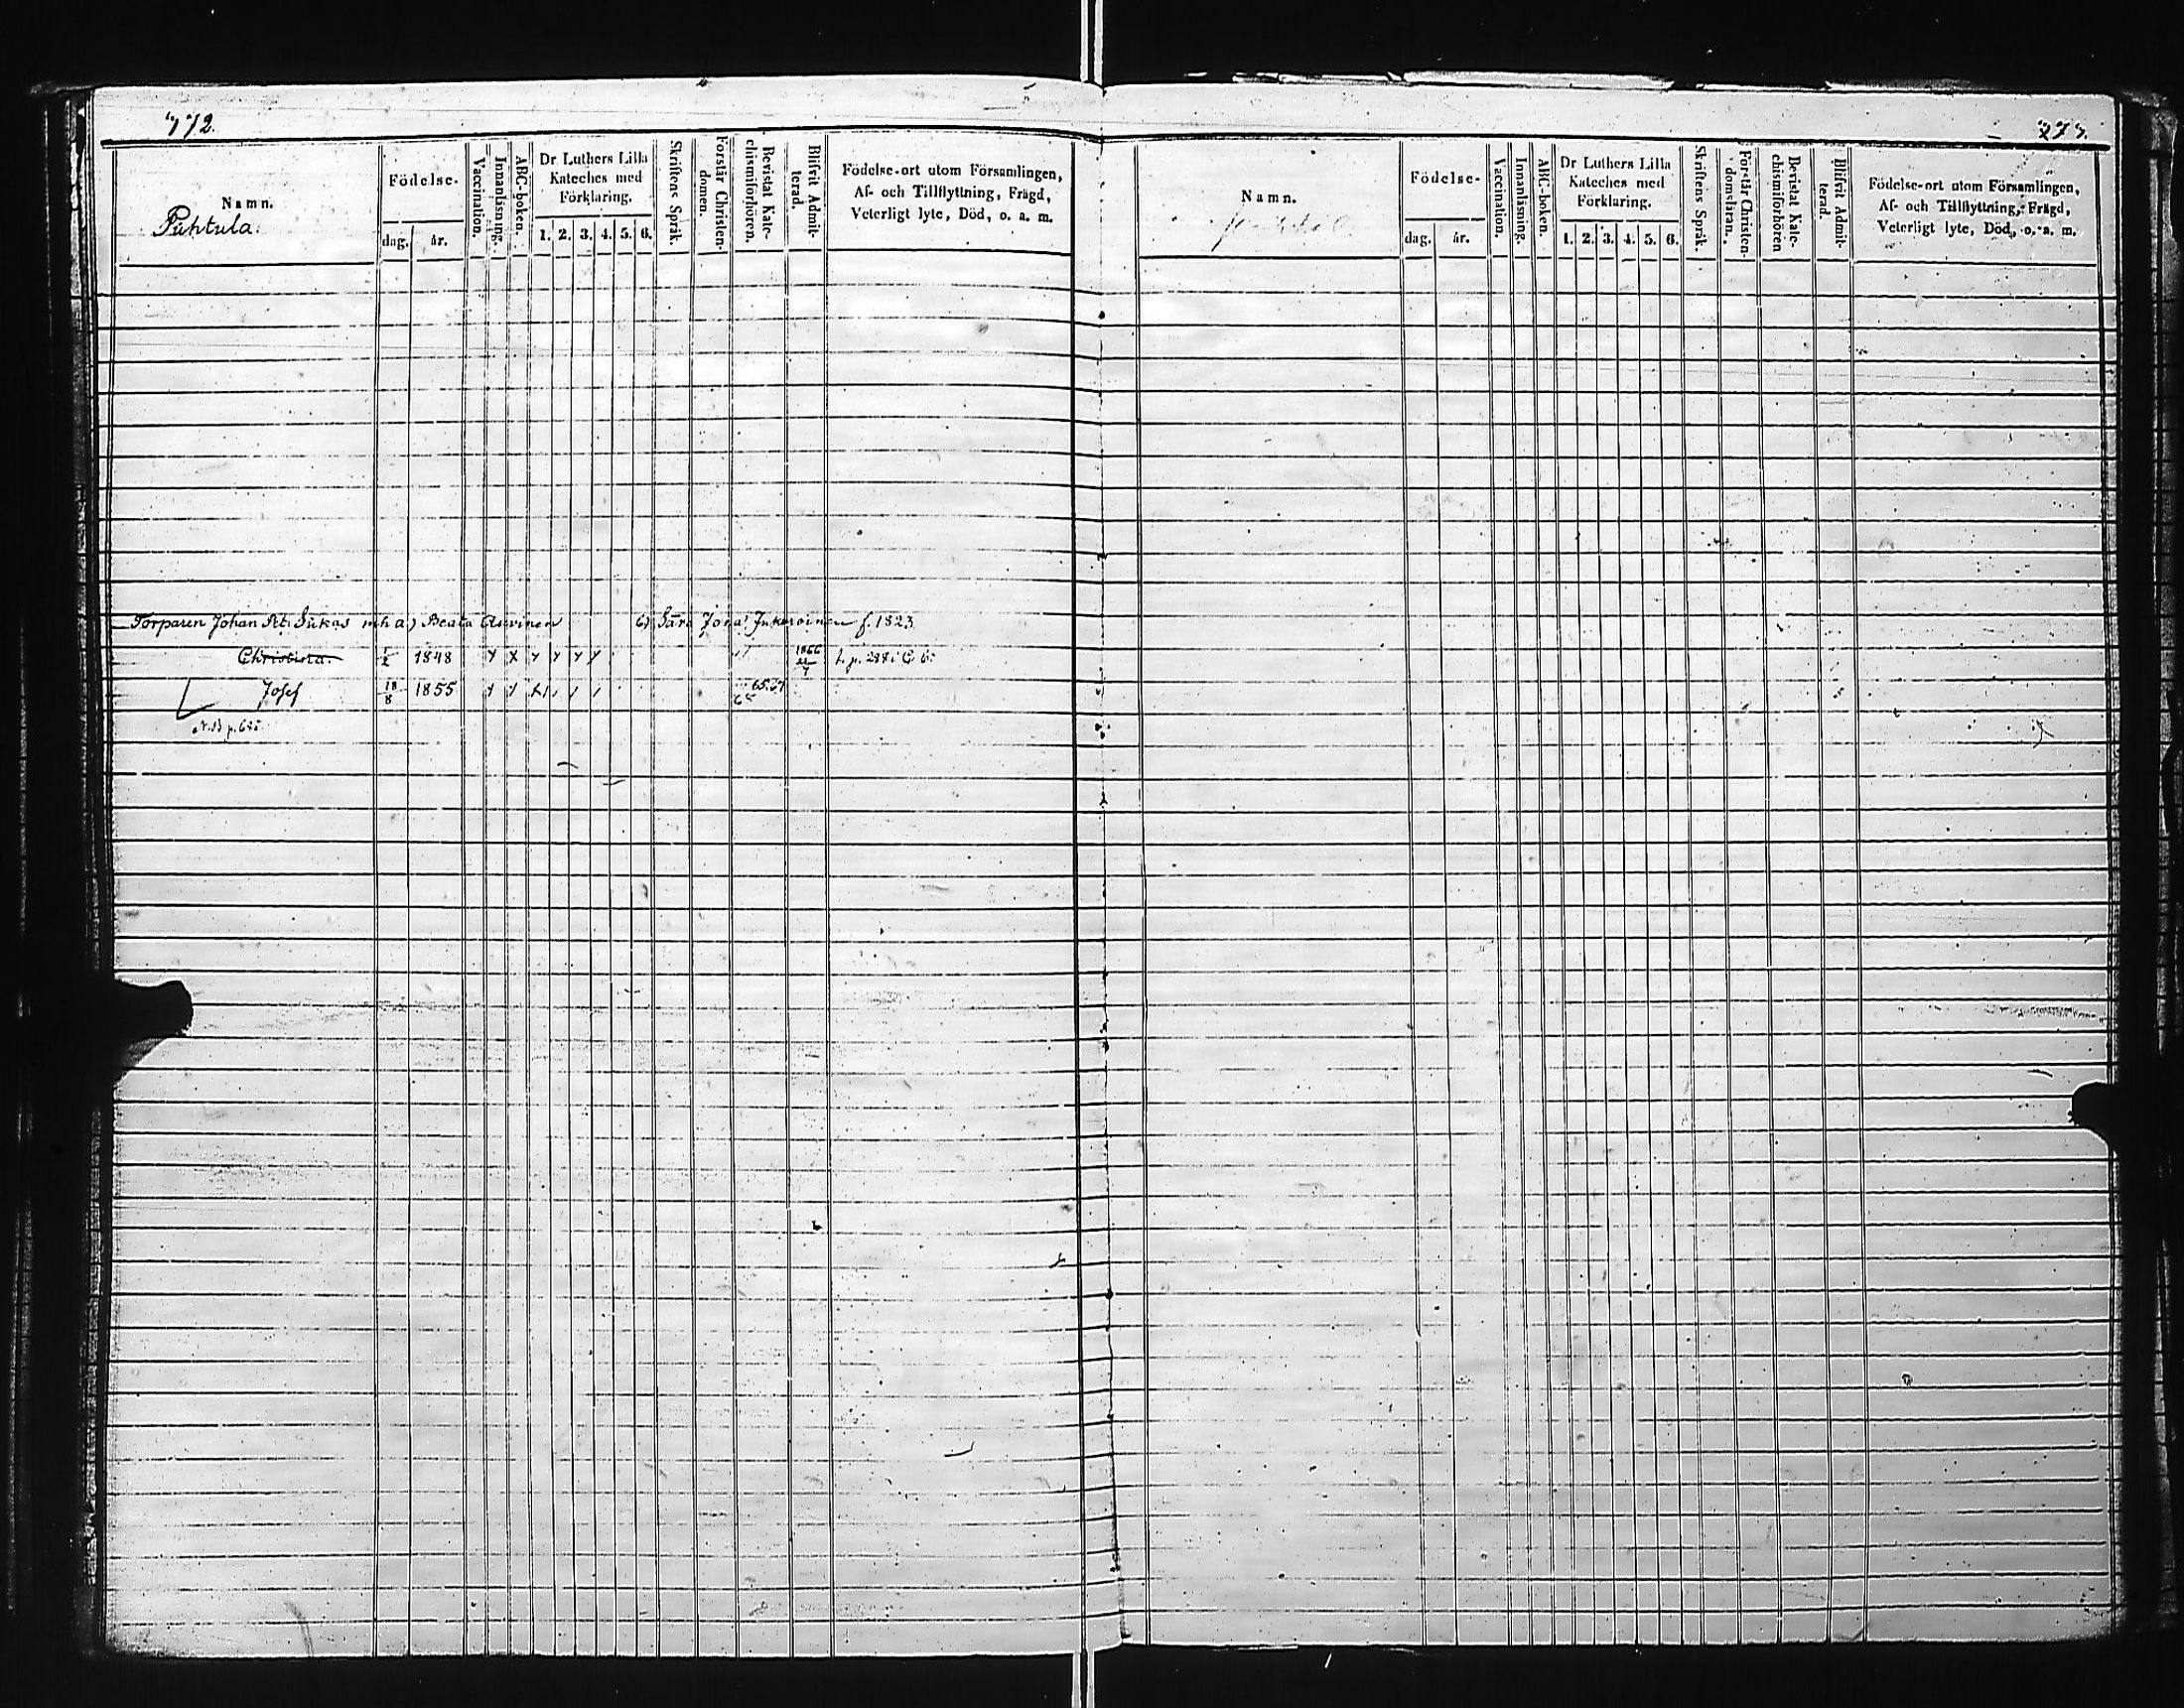 772.
Namn.
Puhtula.
Födelse-
dag. år.
Vaccination.
Innanläsning.
ABC-boken.
Dr Luthers Lilla
Kateches med
Förklaring.
1. 2. 3. 4. 5. 6.
Skriftens Språk.
Förstår Christen-
domen.
Bevistat Kate-
chismiförhören.
Blifvit Admit-
terad.
Födelse-ort utom Församlingen,
Af- och Tillflyttning, Frägd,
Veterligt lyte, Död, o. a. m.
Torparen Johan Pet: Sukas m h a) Beata Auvinen b) Sara Jona: f. 1823
Christina. 1848 1866 p. 288
Josef 18/8 1855 65. 67
N.B p.
Namn.
Födelse-
dag. år.
Vaccination.
Innanläsning.
ABC-boken.
Dr Luthers Lilla
Kateches med
Förklaring.
1. 2. 3. 4. 5. 6.
Skriftens Språk.
Förstår Christen-
domsläran.
Bevistat Kate-
chismiförhören
Blifvit Admit-
terad.
Födelse-ort utom Församlingen,
Af- och Tillflyttning, Frägd,
Veterligt lyte, Död, o. a. m.